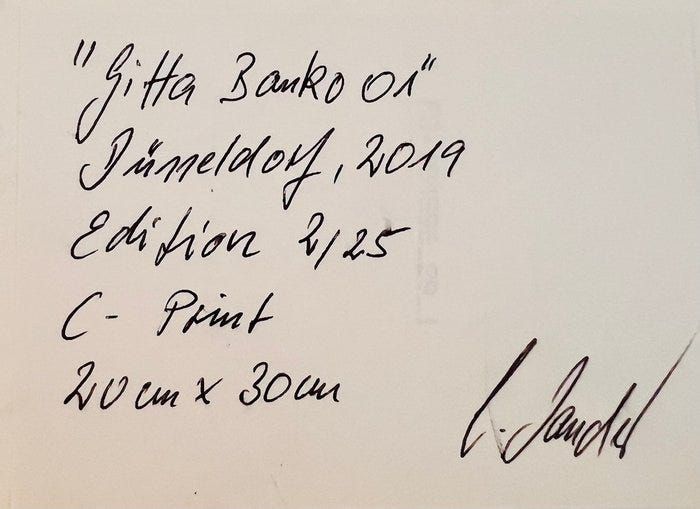 "Gitta Banko 01"
Düsseldorf, 2019
Edition 2/25
C- Print
20cm x 30cm